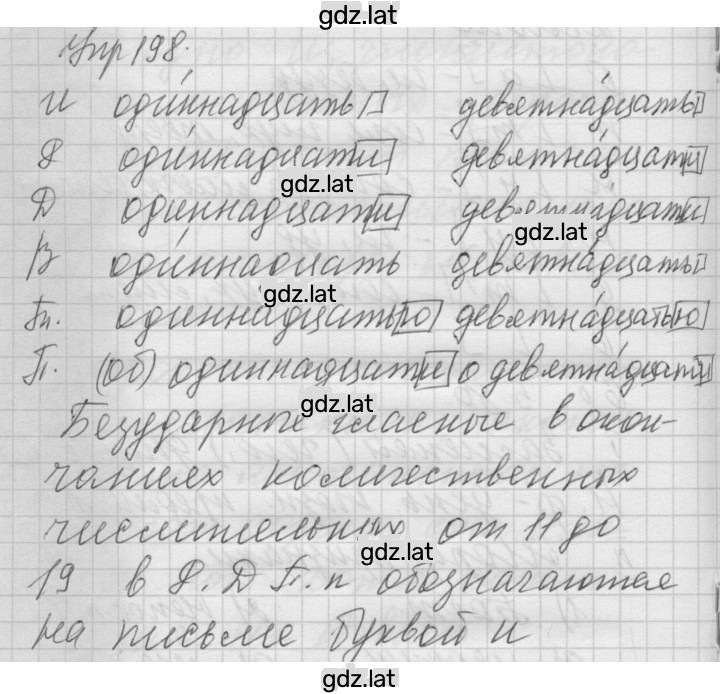 gdz.lat
Упр 198.
И одиннадцать девятнадцать
Р одиннадцати девятнадцати
gdz.lat
Д одиннадцати девятнадцати
gdz.lat
В одиннадцать девятнадцать
gdz.lat
Тп. одиннадцатью девятнадцатью
П. (об) одиннадцати о девятнадцати
gdz.lat
Безударные гласные в окон-
чаниях количественных
числительных от 11 до
gdz.lat
19 в Р. Д П. п обозначаются
на письме буквой и
gdz.lat